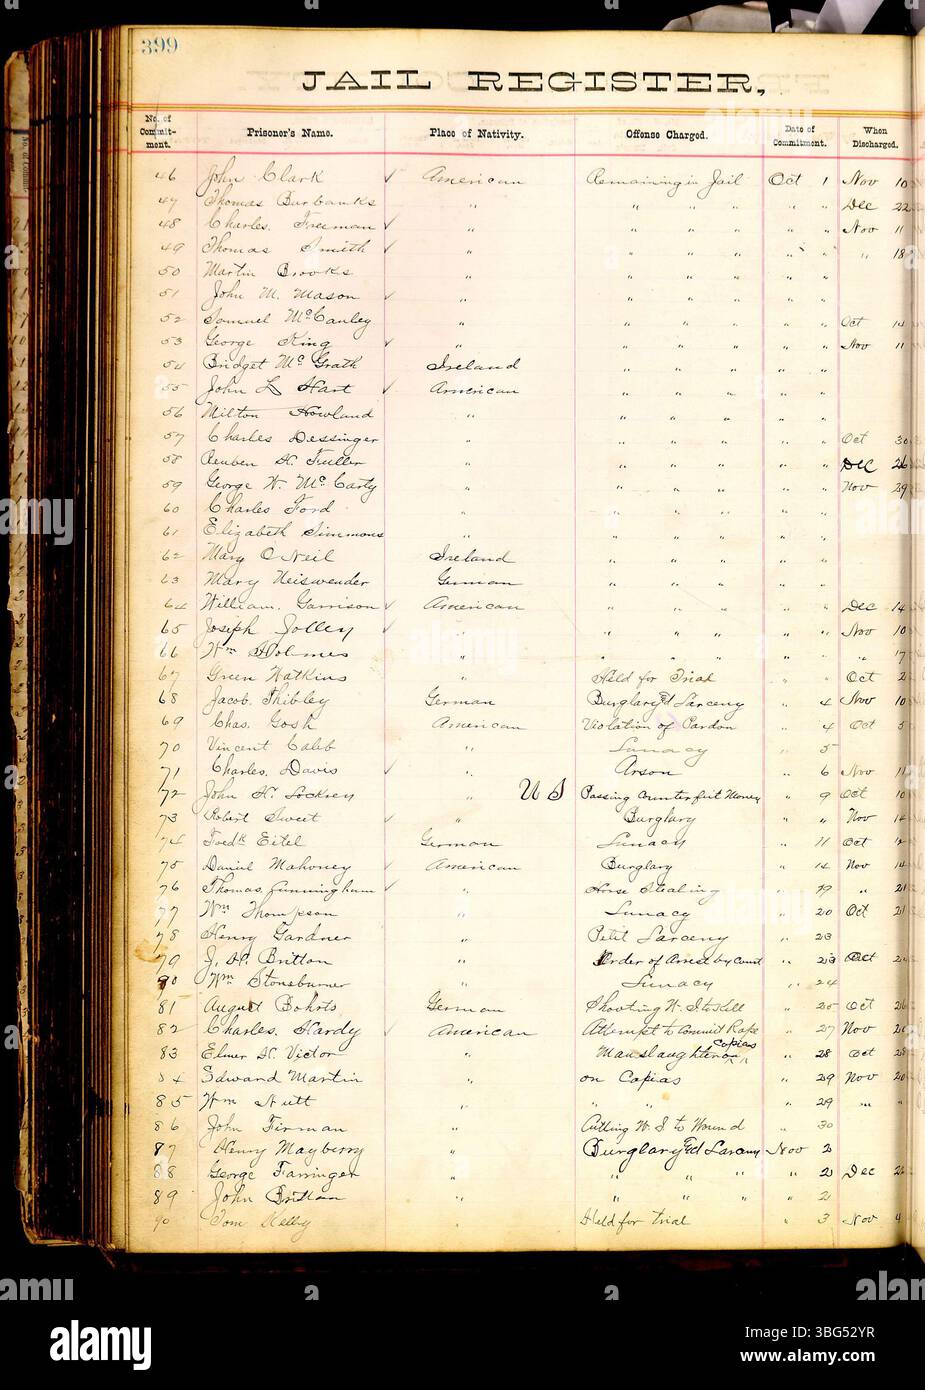 399
JAIL REGISTER,
No. of Commit-ment. Prisoner's Name. Place of Nativity. Offense Charged. Date of Commitment. When Discharged.
46 John Clark ✓ American Remaining in Jail Oct 1 Nov 10
47 Thomas Burbanks " " " " " " Dec 22
48 Charles Freeman ✓ " " " " " " Nov 11
49 Thomas Smith ✓ " " " " " " " 18
50 Martin Brooks " " " " " "
51 John M. Mason ✓ " " " " " "
52 Samuel McCauley " " " " " " Oct 14
53 George King ✓ " " " " " " Nov 11
54 Bridget McGrath Ireland " " " " "
55 John L Hart ✓ American " " " " "
56 Milton Howland " " " " " "
57 Charles Dessinger " " " " " " Oct 30
58 Reuben H. Fuller " " " " " " Dec 26
59 George W. McCarty " " " " " " Nov 29
60 Charles Ford " " " " " "
61 Elizabeth Simmons " " " " " "
62 Mary O Neil Ireland " " " " "
63 Mary Neiswender German " " " " "
64 William. Garrison ✓ American " " " " " Dec 14
65 Joseph Jolley ✓ " " " " " " Nov 10
66 Wm Holmes " " " " " " " 7
67 Green Watkins " Held for Trial " " Oct 2
68 Jacob Shibley German Burglary & Larceny " 4 Nov 10
69 Chas. Gosh American Violation of Pardon " 4 Oct 5
70 Vincent Caleb " Lunacy " 5
71 Charles. Davis ✓ " Arson " 6 Nov 11
72 John H. Lockrey " U S Passing Counterfeit Money " 9 Oct 10
73 Robert Sweet ✓ " Burglary " " Nov 14
74 Fredk Eitel German Lunacy " 11 Oct 12
75 Daniel Mahoney ✓ American Burglary " 14 Nov 14
76 Thomas. Cunningham ✓ " Horse Stealing " 19 " 21
77 Wm Thompson " Lunacy " 20 Oct 21
78 Henry Gardner " Petit Larceny " 23
79 J. H. Britton " Order of Arrest by Court " 23 Oct
80 Wm Stonsburner " Lunacy " 24
81 August Bohrts German Shooting W. I. to Kill " 25 Oct 26
82 Charles. Hardy ✓ American Attempt to Commit Rape " 27 Nov
83 Elmer H. Victor " Manslaughter on Copias " 28 Oct 28
84 Edward Martin " on Copias " 29 Nov 20
85 Wm Nutt " " " " 29 " "
86 John Firman " Cutting W. I to Wound " 30
87 Henry Mayberry " Burglary & Larceny Nov 2
88 George Farringer " " " " " 2 Dec
89 John Britton " " " " " 2
90 Tom Kelly " Held for trial " 3 Nov 4
alamy
Image ID: 3BG52YR
www.alamy.com